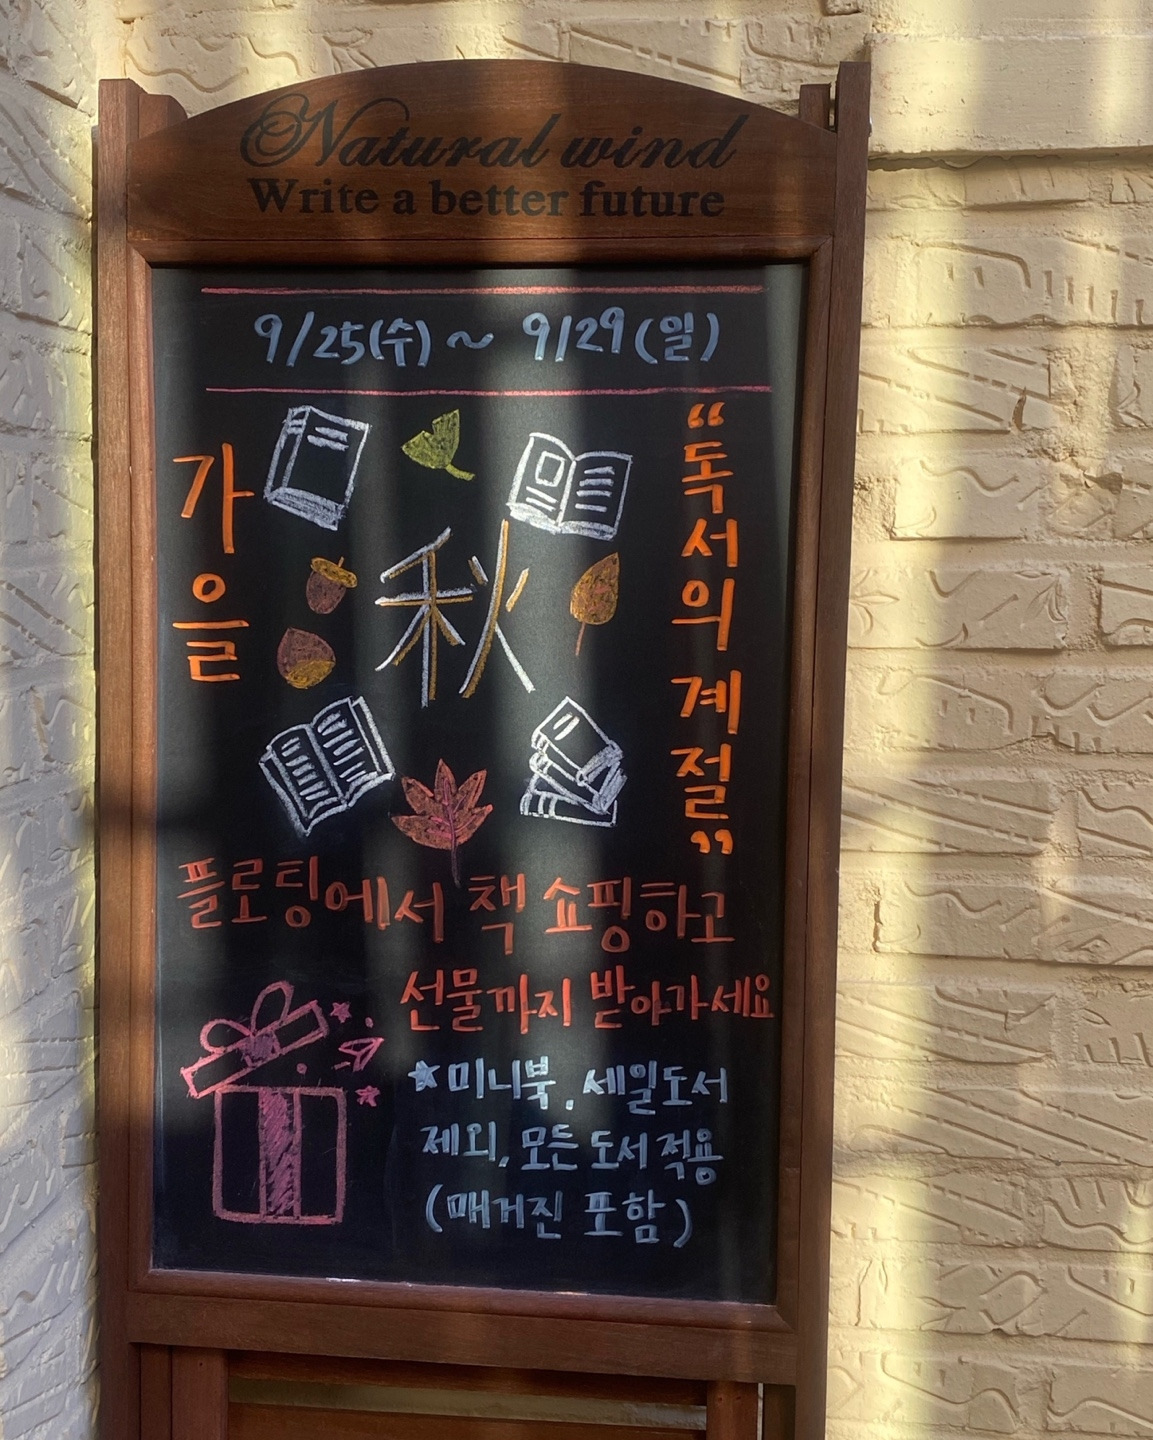 Natural wind
Write a better future
9/25(수) ~ 9/29(일)
가을
秋
"독서의 계절"
플로팅에서 책 쇼핑하고
선물까지 받아가세요
★미니북, 세일도서
제외, 모든 도서 적용
(매거진 포함)